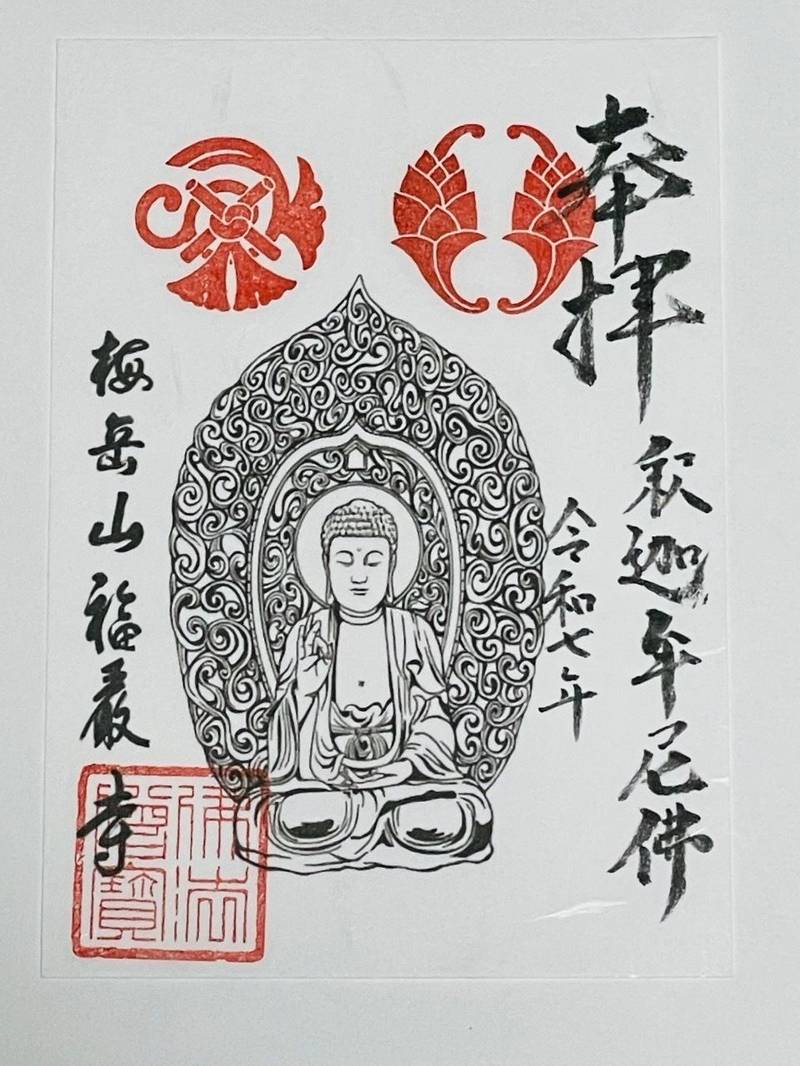 奉拝
釈迦牟尼佛
令和七年
梅岳山福厳寺
佛法
僧寶